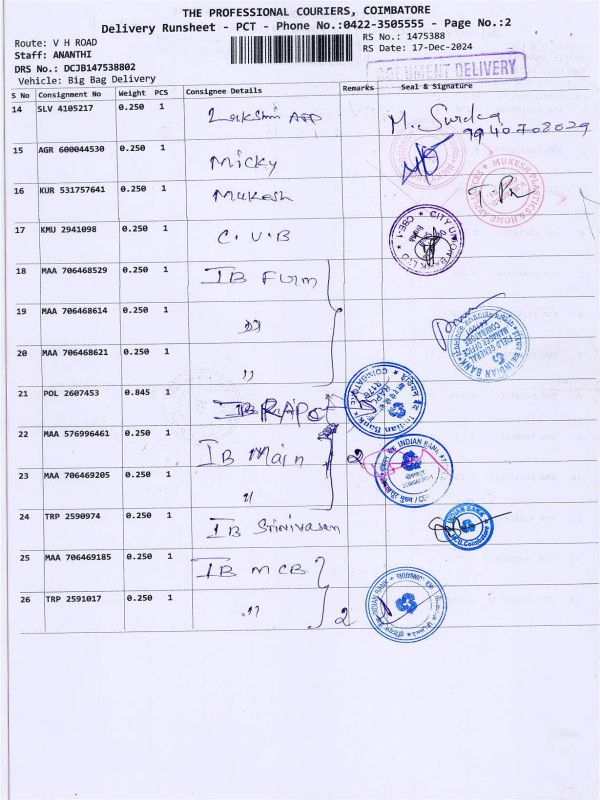 THE PROFESSIONAL COURIERS, COIMBATORE
Delivery Runsheet - PCT - Phone No.:0422-3505555 - Page No.:2
Route: V H ROAD
RS No.: 1475388
Staff: ANANTHI
RS Date: 17-Dec-2024
DRS No.: DCJB147538802
DOCUMENT DELIVERY
Vehicle: Big Bag Delivery
S No Consignment No Weight PCS Consignee Details Remarks Seal & Signature
14 SLV 4105217 0.250 1 Lakshmi App
9940708029
15 AGR 600044530 0.250 1 Micky
16 KUR 531757641 0.250 1 Mukesh
MUKESH PLASTICS & HOME APPLIANCES
17 KMU 2941098 0.250 1 C.U.B
CITY UNION BANK LTD CBE-1
18 MAA 706468529 0.250 1 IB FGM
19 MAA 706468614 0.250 1 ,,
INDIAN BANK FIELD GENERAL MANAGER OFFICE COIMBATORE
20 MAA 706468621 0.250 1 ,,
21 POL 2607453 0.845 1 IB RAPC
Indian Bank RAPC COIMBATORE
22 MAA 576996461 0.250 1 IB Main 2
INDIAN BANK
23 MAA 706469205 0.250 1 ,,
24 TRP 2590974 0.250 1 IB Srinivasan
INDIAN BANK Coimbatore
25 MAA 706469185 0.250 1 IB MCB
26 TRP 2591017 0.250 1 ,, 2
INDIAN BANK